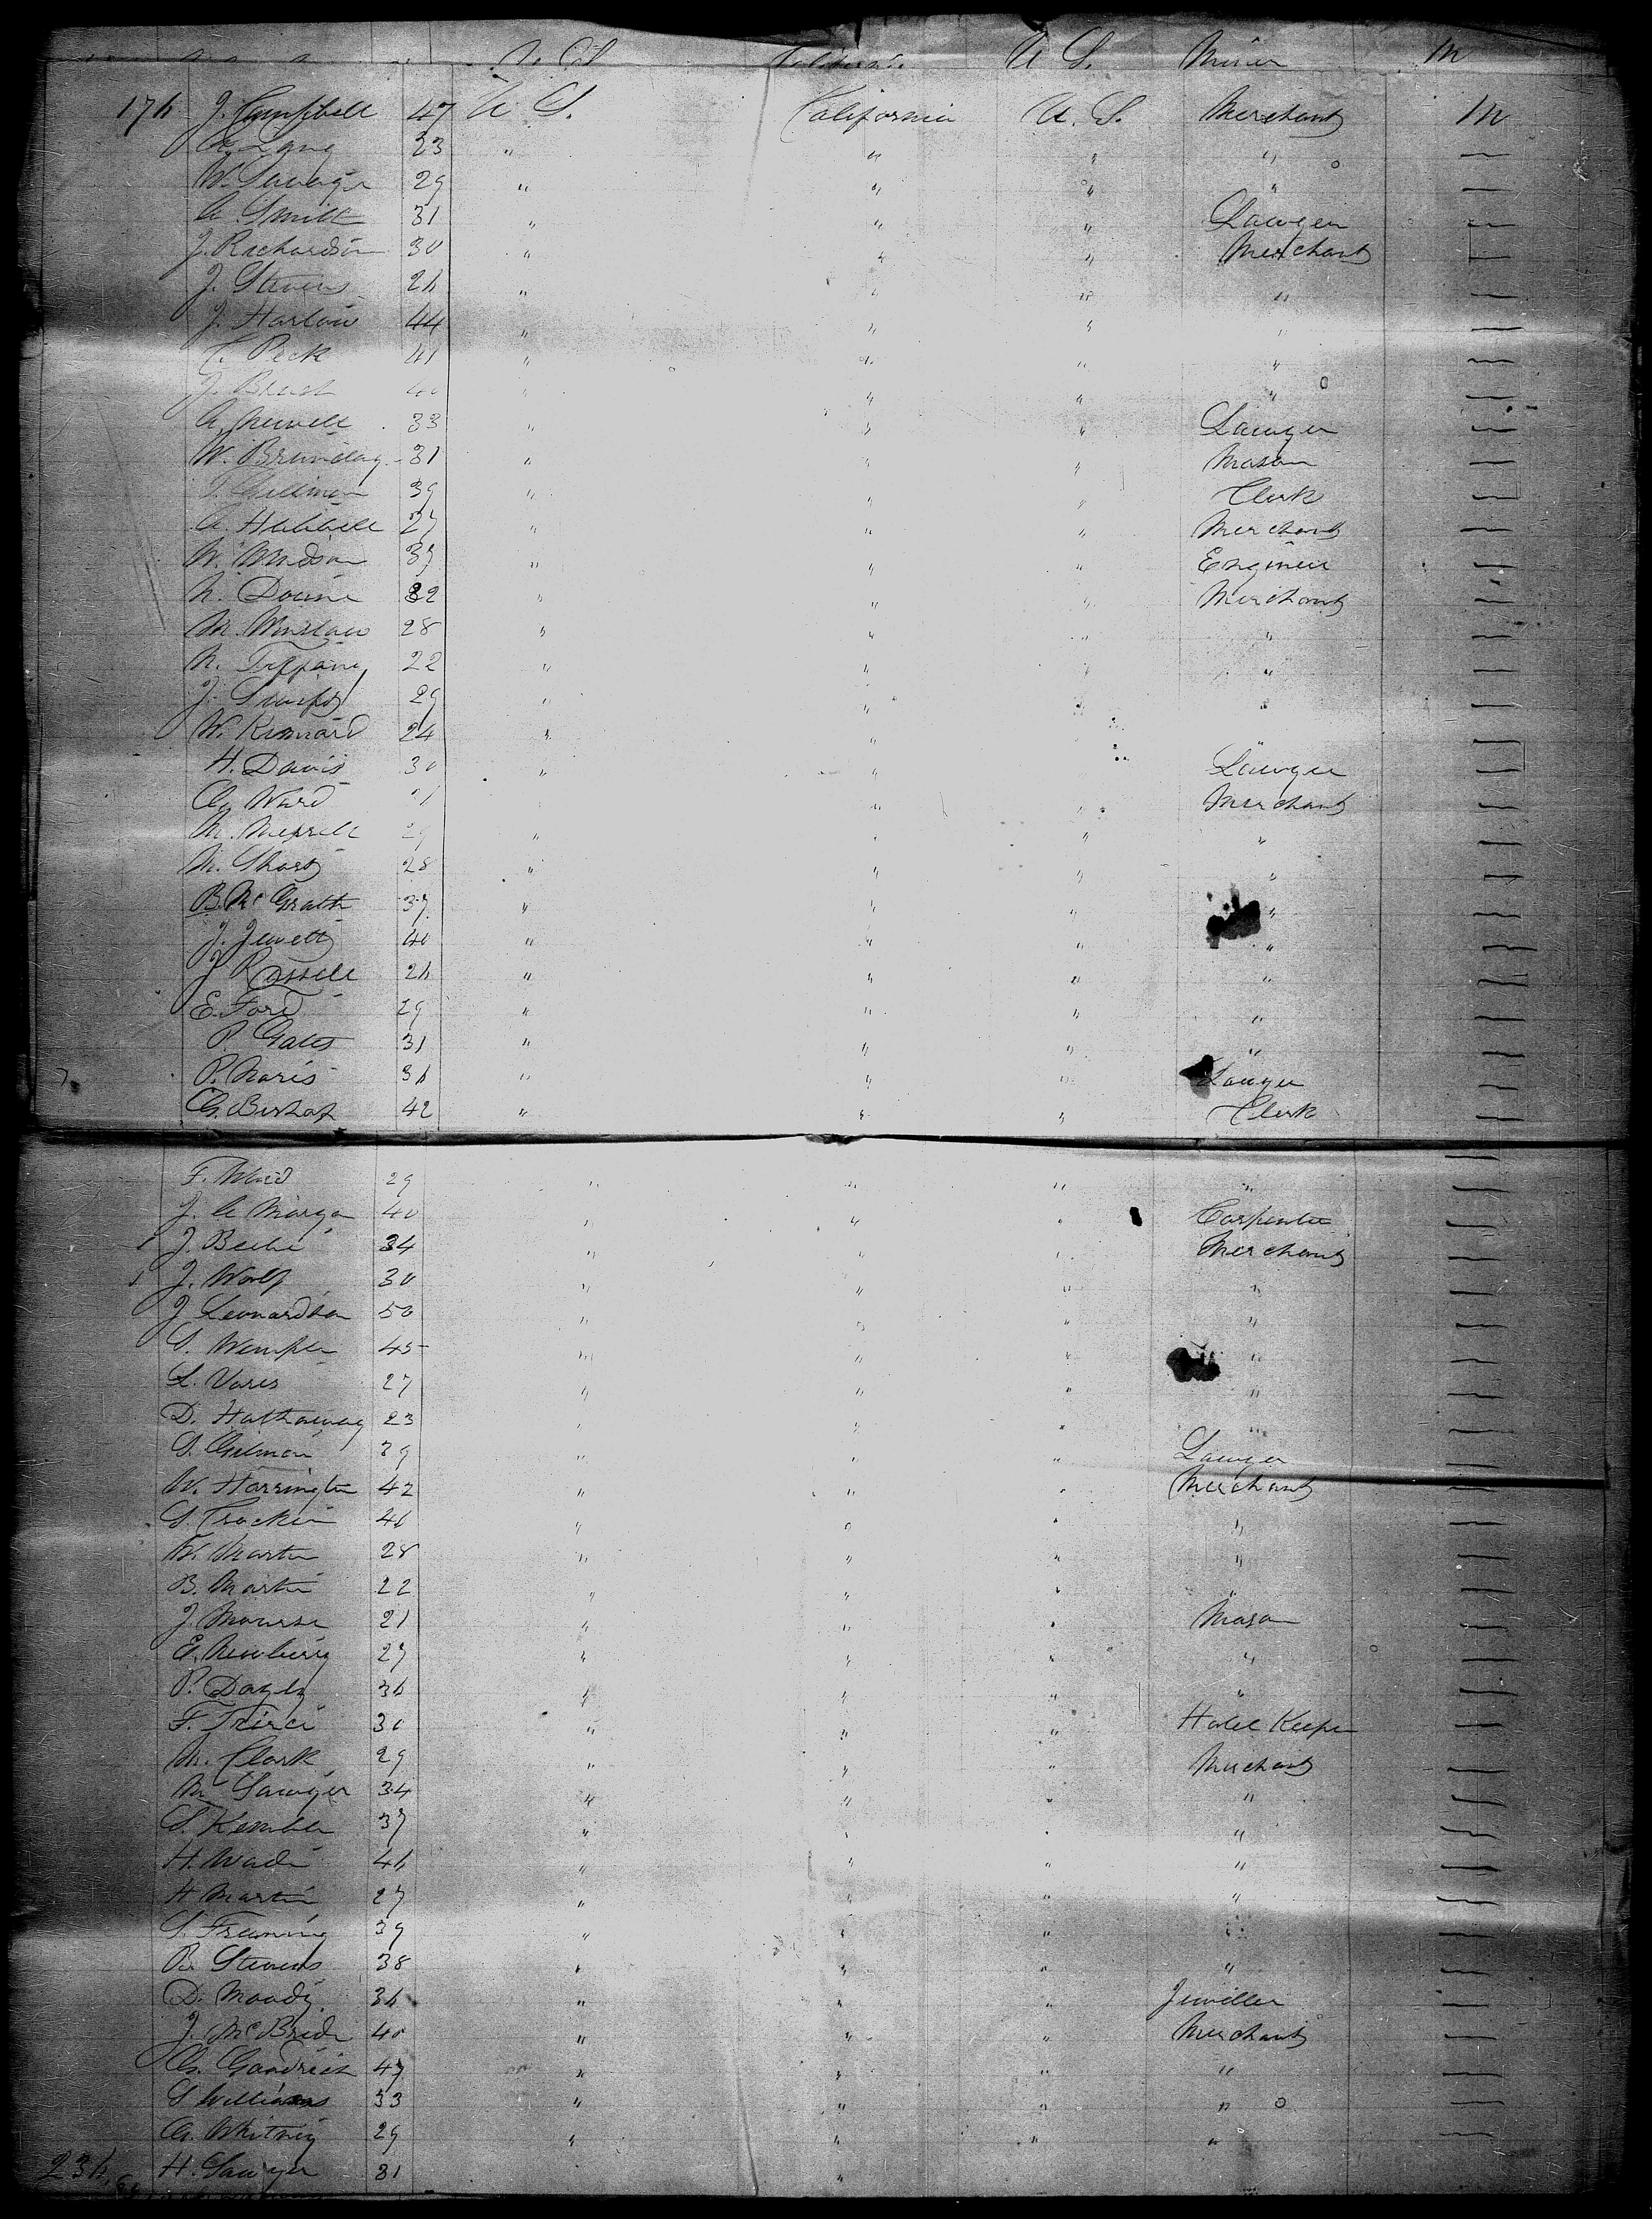 U S. Miner M
176 J. Campbell 47 U. S. California U. S. Merchant M
A. Lang 23 " " " "
W. Sawager 29 " " " "
A. Smith 31 " " " Lawyer
J. Richardson 30 " " " Merchant
J. Stevens 26 " " " "
J. Harlow 44 " " " "
Peck 41 " " " "
J. 40 " " " "
A. Newell 33 " " " Lawyer
W. Brundag 31 " " " Mason
Gillman 39 " " " Clerk
A. Hubbell 27 " " " Merchant
W. 39 " " " Engineer
N. 32 " " " Merchant
M. Winslow 28 " " " "
N. Tiffany 22 " " " "
J. 29 " " " "
W. Kinnard 24 " " " "
H. Davis 30 " " " Lawyer
Ward " " " Merchant
M. Merrill 29 " " " "
M. Short 28 " " " "
B. McGrath 37 " " " "
J. Jewett 40 " " " "
J Russell 26 " " " "
E. Ford 29 " " " "
P. Gates 31 " " " "
P. Maris 36 " " " Lawyer
G. Bishop 42 " " " Clerk
F. Ward 29 " " " "
J. A Morgan 40 " " " Carpenter
J. Beebe 34 " " " Merchant
J. Wolf 30 " " " "
J Leonardson 50 " " " "
S. Wemple 45 " " " "
L. Vores 27 " " " "
D. Hathaway 23 " " " "
S. Gilman 39 " " " Lawyer
W. Harrington 42 " " " Merchant
S. 46 " " " "
W. Martin 28 " " " "
B. Martin 22 " " " "
J. Mourse 21 " " " Mason
E. Newberry 27 " " " "
P. Dayly 36 " " " "
F. 30 " " " Hotel Keeper
M. Clark 29 " " " Merchant
M Sawyer 34 " " " "
S. Kemble 37 " " " "
H. Wade 46 " " " "
H Martin 27 " " " "
S. 39 " " " "
B. Stevens 38 " " " "
D. Moody 36 " " " Jeweller
J. McBride 40 " " " Merchant
Goodrich 47 " " " "
S Williams 33 " " " "
Whitney 29 " " " "
236 H. Sawyer 31 "